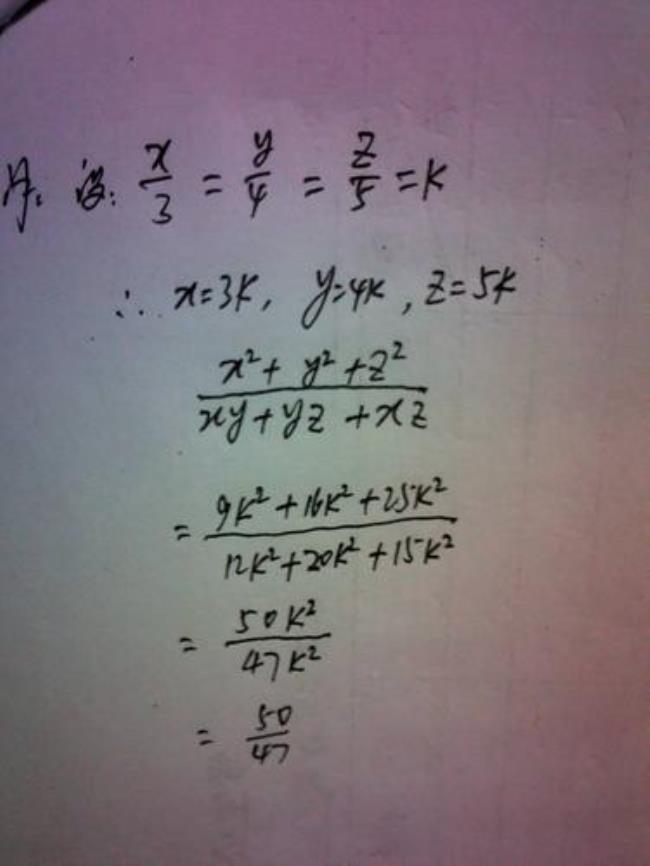 设: x/3 = y/4 = z/5 = K
∴ x=3K, y=4K, z=5K
x²+y²+z²
xy+yz+xz
= 9K²+16K²+25K²
12K²+20K²+15K²
= 50K²
47K²
= 50
47